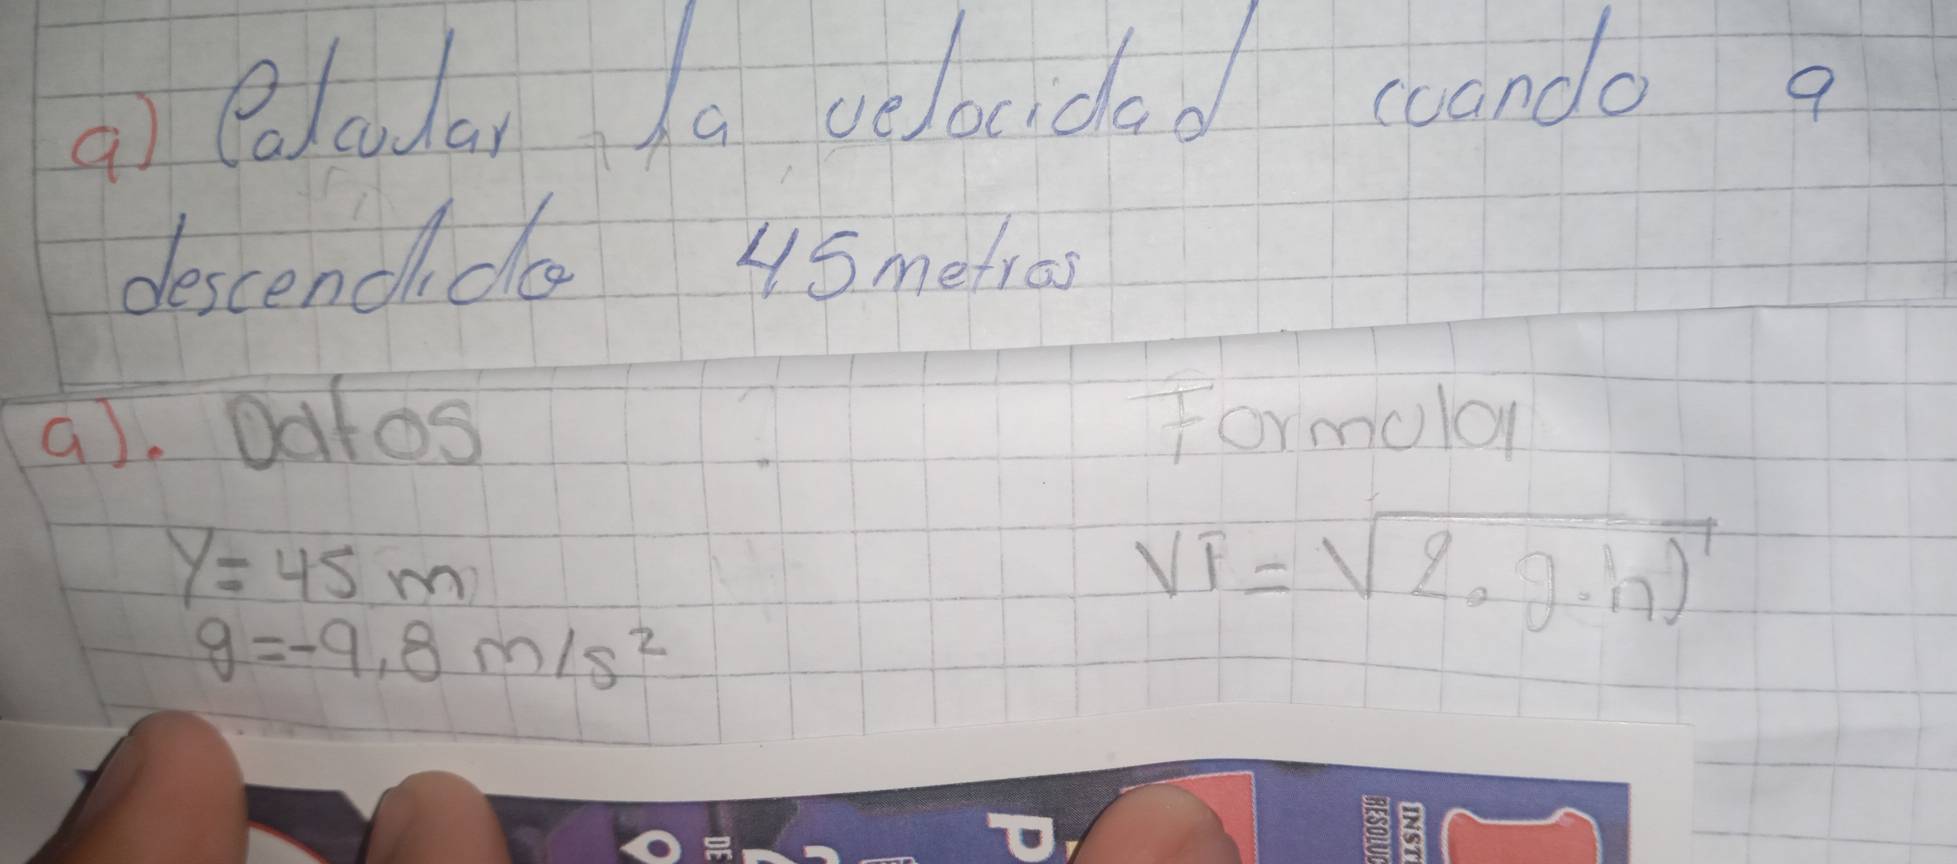 a) Calcular la velocidad cuando a
descendido 45 metros
a). Datos
Formula
Y = 45 m
VF = √2.g.h)
g = -9,8 m/s²
P
DE
INST
RESOLUC